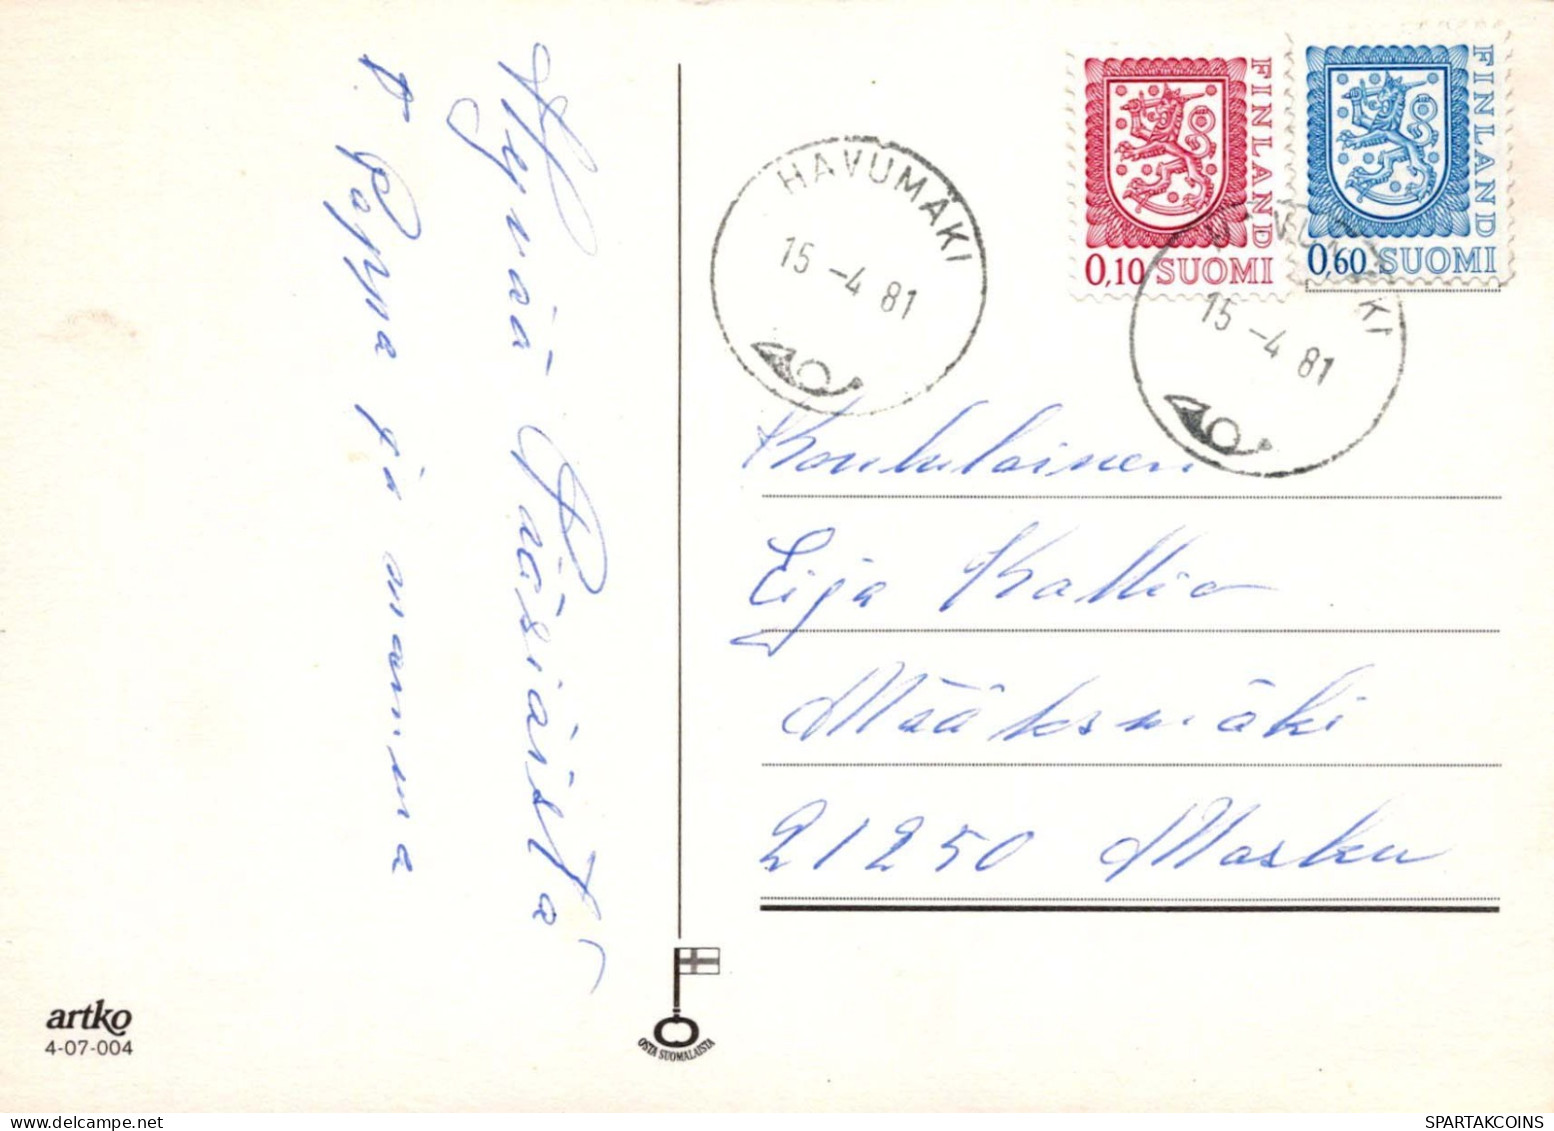 Hyvää Pääsiäistä
T. Pappa ja mamma
HAVUMÄKI
15 -4 81
FINLAND
0,10 SUOMI
FINLAND
0,60 SUOMI
15 -4 81
Koululainen
Eija Kallio
Määksmäki
21250 Masku
artko
4-07-004
OSTA SUOMALAISTA
SPARTAKCOINS